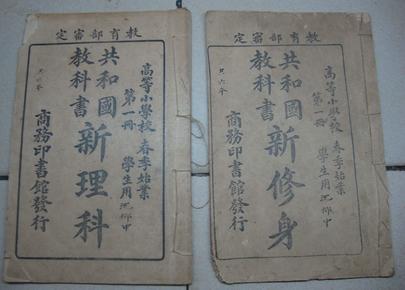 教育部審定
高等小學校 春季始業
第一冊 學生用
共和國
教科書
新理科
商務印書館發行
教育部審定
高等小學校 春季始業
第一冊 學生用
共和國
教科書
新修身
商務印書館發行